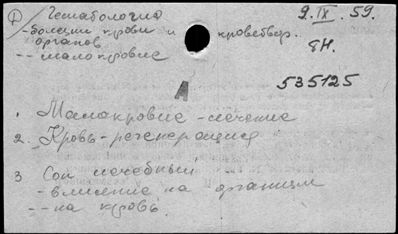 ① Гематология 9.IX.59.
- болезни крови и кроветвор. 8Н.
органов
-- малокровие
535125
А
1. Малокровие - лечение
2. Кровь - регенерация
3 Сон лечебный
- влияние на организм
-- на кровь.